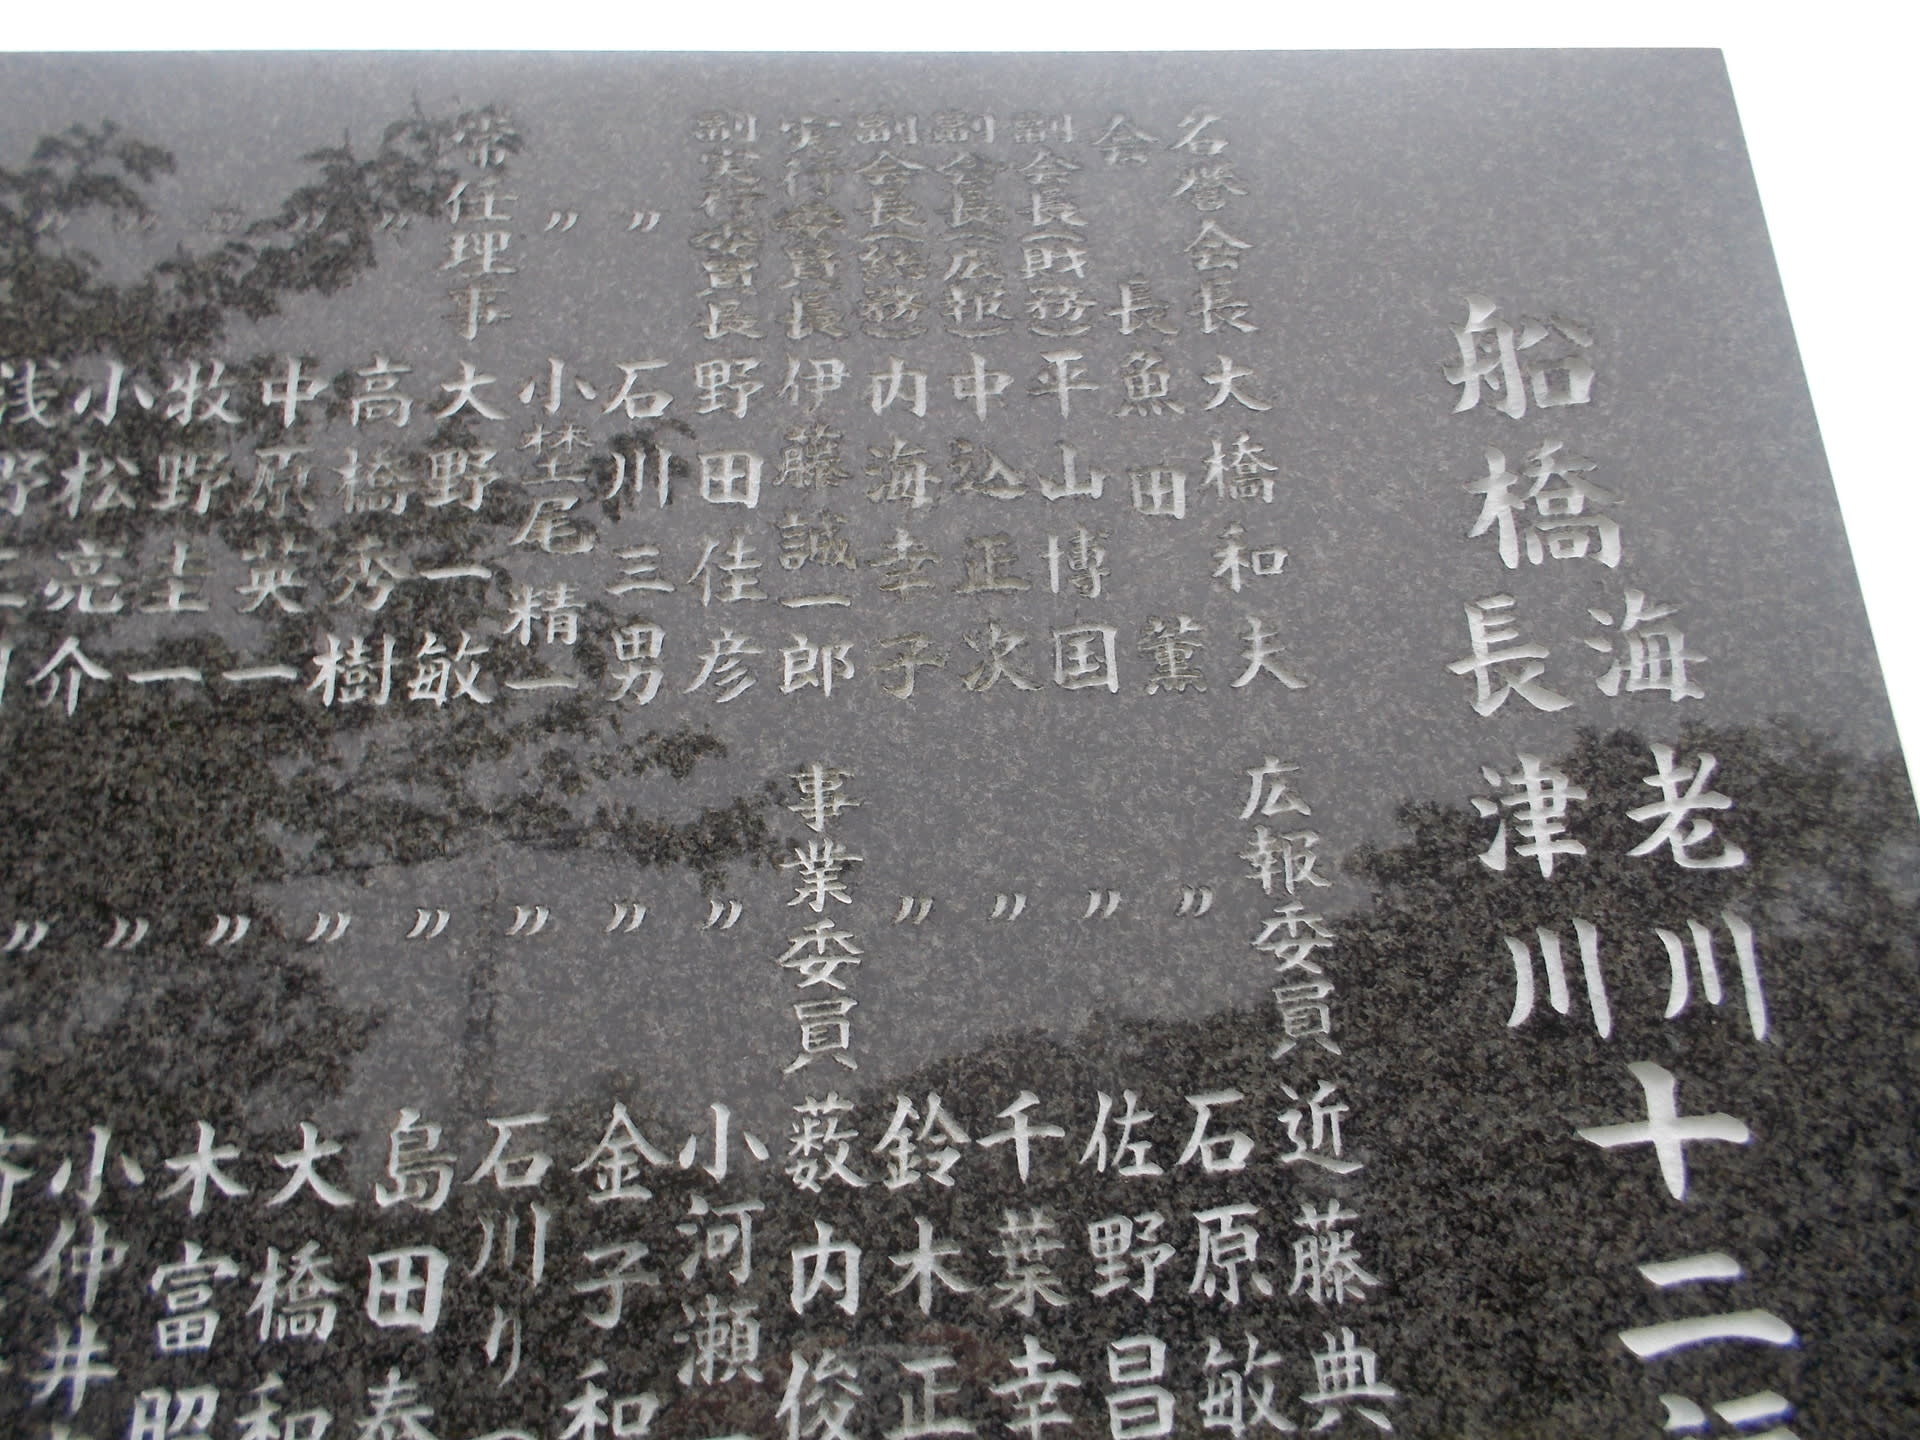 海老川十二
船橋長津川
名誉会長 大橋和夫
会長 魚田薫
副会長(財務) 平山博国
副会長(広報) 中込正次
副会長(総務) 内海幸子
実行委員長 伊藤誠一郎
副実行委員長 野田佳彦
〃 石川三男
〃 小埜尾精一
常任理事 大野一敏
〃 高橋秀樹
〃 中原英一
〃 牧野圭一
〃 小松亮介
浅野
広報委員 近藤典
〃 石原敏
〃 佐野昌
〃 千葉幸
〃 鈴木正
事業委員 薮内俊
〃 小河瀬
〃 金子和
〃 石川り
〃 島田泰
〃 大橋和
〃 木富昭
〃 小仲井
〃